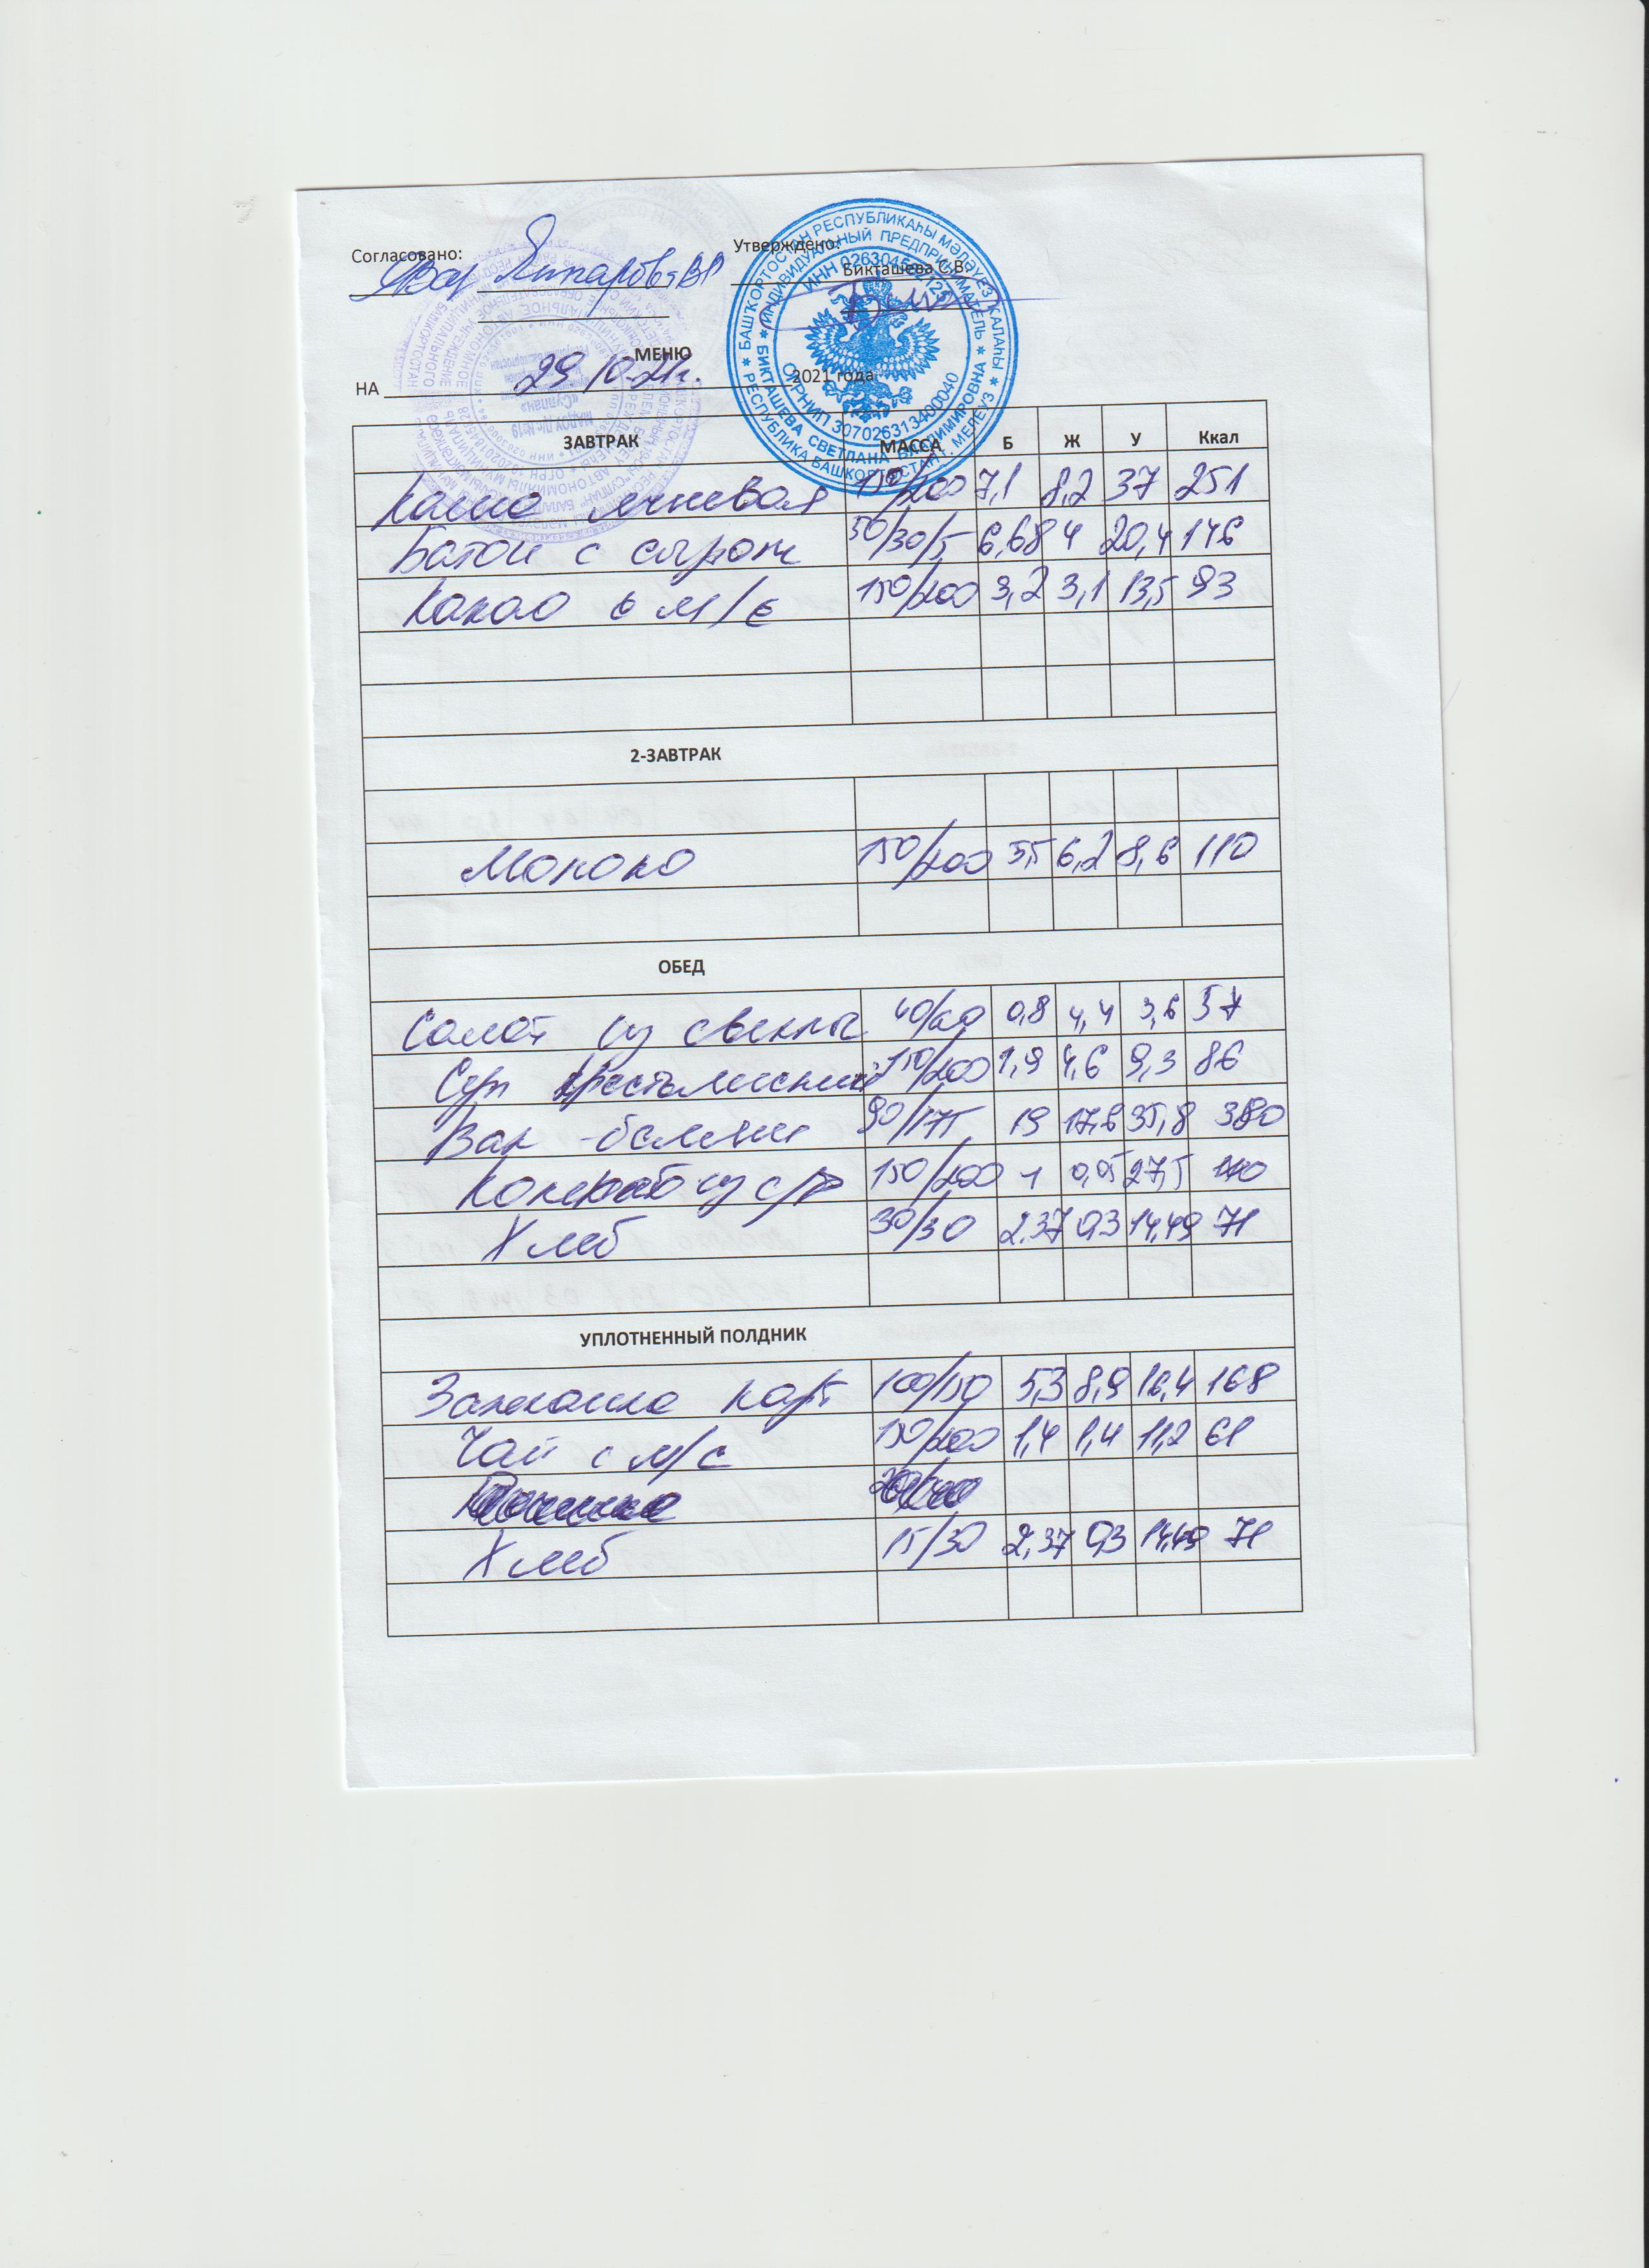 Согласовано:
Утверждено:
Бикташева С.В.
МЕНЮ
НА 29.10.21г. 2021 года
ЗАВТРАК МАССА Б Ж У Ккал
Каша 150/200 7,1 8,2 37 251
Батон с сыром 30/30/5 6,68 4 20,4 146
Какао с м/с 150/200 3,2 3,1 13,5 93
2-ЗАВТРАК
Молоко 150/200 5,5 6,2 8,6 110
ОБЕД
Салат из свеклы 40/60 0,8 4,4 3,6 57
Суп крестьянский 150/200 1,9 4,6 9,3 86
Вак-бэлиш 90/175 19 17,8 35,8 380
Компот из с/ф 150/200 1 0,05 27,5 110
Хлеб 30/30 2.37 0,3 14,49 71
УПЛОТНЕННЫЙ ПОЛДНИК
Запеканка карт 100/150 5,3 8,9 16,4 168
Чай с м/с 150/200 1,4 1,4 11,2 61
Хлеб 15/30 2,37 0,3 14,49 71
БАШҠОРТОСТАН РЕСПУБЛИКАҺЫ МӘЛӘҮЕЗ ҠАЛАҺЫ
РЕСПУБЛИКА БАШКОРТОСТАН Г. МЕЛЕУЗ
ИНДИВИДУАЛЬНЫЙ ПРЕДПРИНИМАТЕЛЬ
БИКТАШЕВА СВЕТЛАНА ВЛАДИМИРОВНА
ОГРНИП 307026313400040